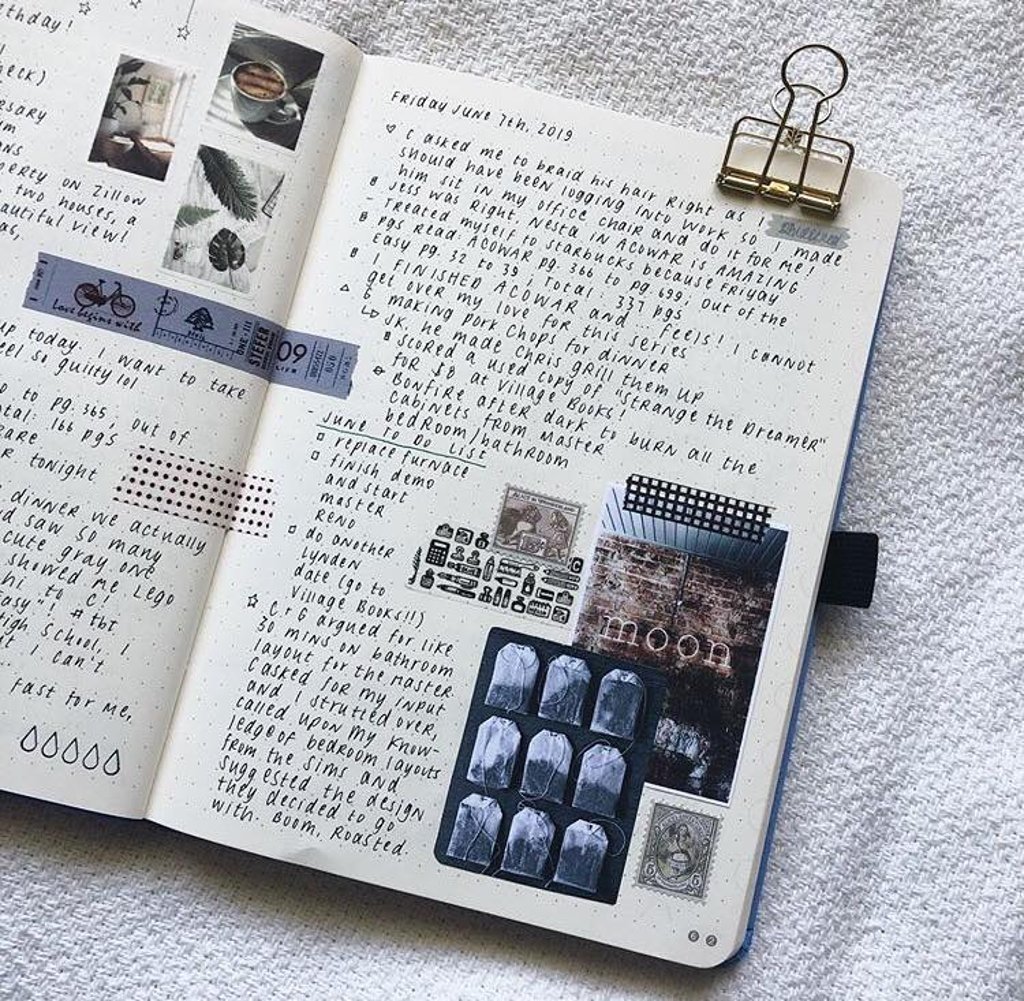 rthday!
heck)
rsary
um
ans
perty on Zillow
two houses, a
autiful view!
as,
Love begins with
STEFER
09
up today. I want to take
eel so guilty lol
to pg. 365, out of
otal: 166 pgs
are
r tonight
dinner we actually
d saw so many
cute gray one
showed me Lego
hi to C!
asy"! #tbt
High School, I
t I can't
fast for me,
Friday June 7th, 2019
♡ C asked me to braid his hair right as I
should have been logging into work so I made
him sit in my office chair and do it for me!
Jess was right, Nesta in ACOWAR is AMAZING
- Treated myself to Starbucks because friyay
pgs read: ACOWAR pg. 366 to pg. 699; out of the
Easy pg. 32 to 39; total: 337 pgs
I FINISHED ACOWAR and... feels! I cannot
get over my love for this series
△ G making pork chops for dinner
↳ JK, he made Chris grill them up
scored a used copy of "Strange the Dreamer"
for $8 at Village Books!
Bonfire after dark to burn all the
cabinets from master
bedroom/bathroom
- June To Do List
□ replace furnace
□ finish demo
and start
master
reno
□ do another
Lynden
date (go to
Village Books!!)
☆ C & G argued for like
30 mins on bathroom
layout for the master.
C asked for my input
and I strutted over,
called upon my know-
ledge of bedroom layouts
from the sims and
suggested the design
they decided to go
with. Boom, Roasted.
moon
62